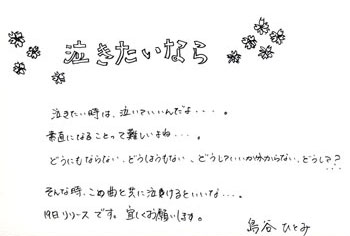 泣きたいなら
泣きたい時は、泣いていいんだよ・・・。
素直になることって難しいよね・・・。
どうにもならない、どうしようもない、どうしていいか分からない、どうして??
そんな時、この曲と共に泣けるといいな・・・。
19日リリースです。宜しくお願いします。
島谷ひとみ